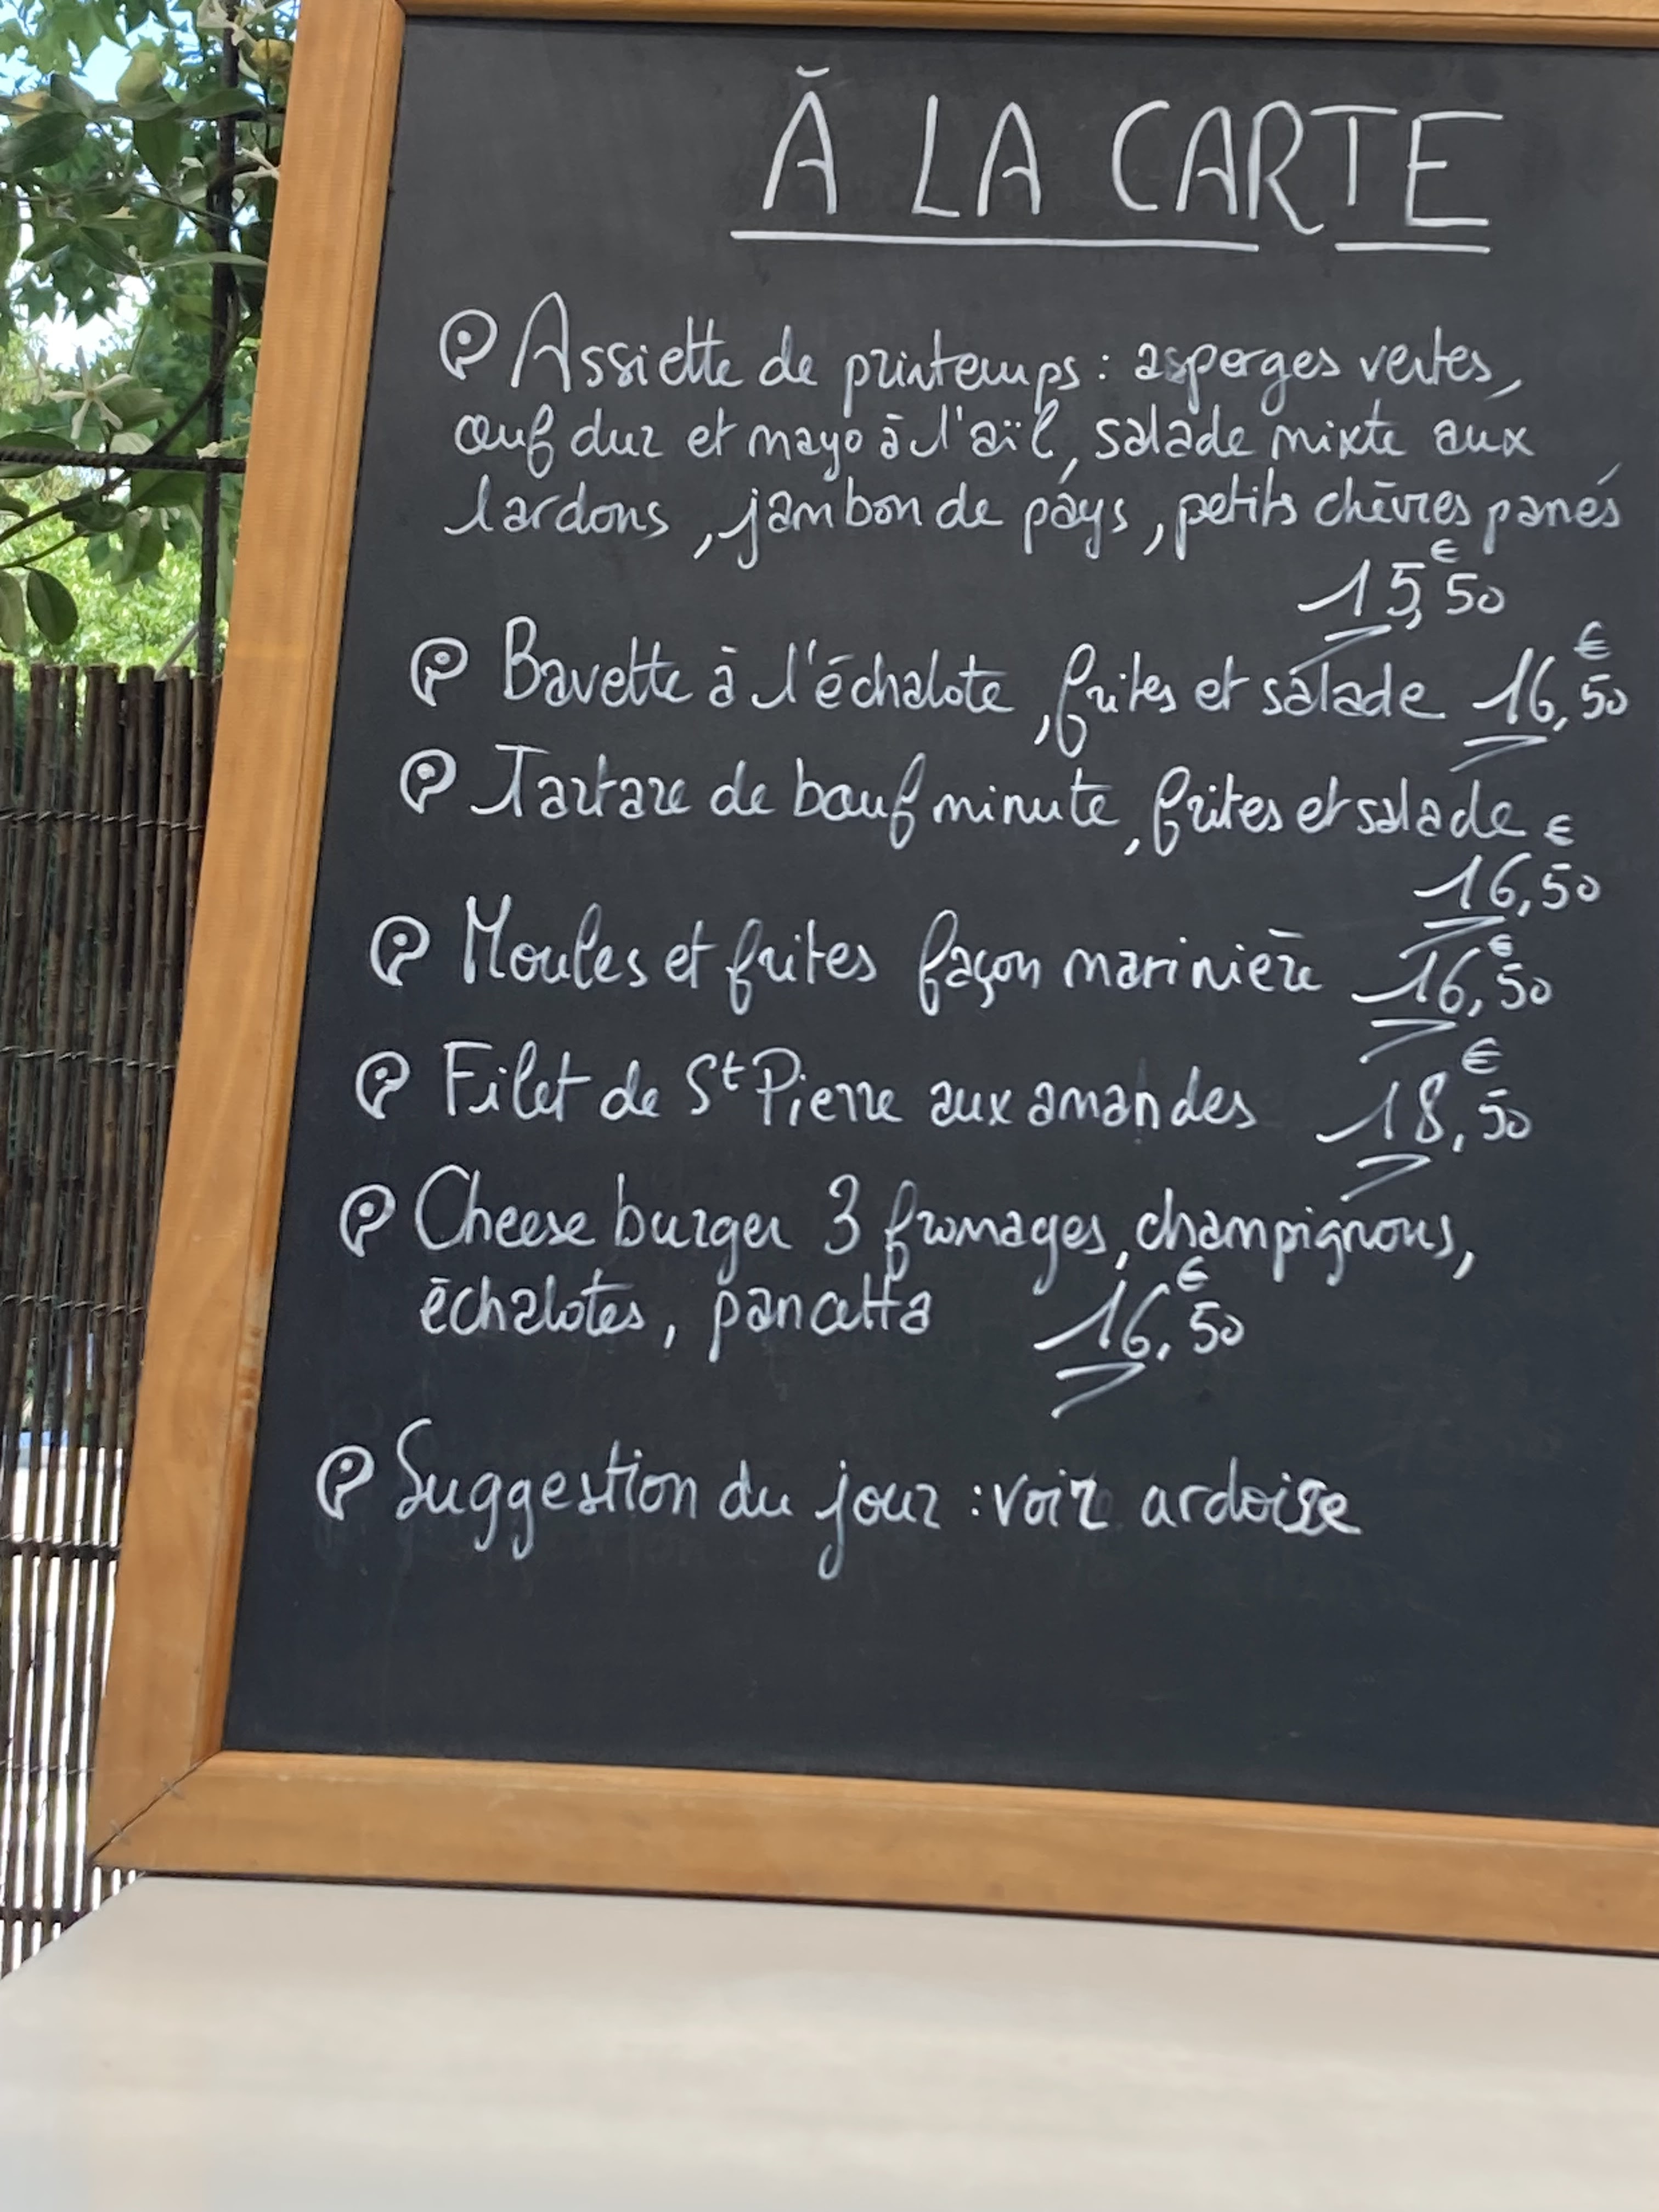 À LA CARTE
Assiette de printemps : asperges vertes,
œuf dur et mayo à l'aïl, salade mixte aux
lardons, jambon de pays, petits chèvres panés
15,€50
Bavette à l'échalote, frites et salade 16,€50
Tartare de bœuf minute, frites et salade
16,€50
Moules et frites façon marinière 16,€50
Filet de St Pierre aux amandes 18,€50
Cheese burger 3 fromages, champignons,
échalotes, pancetta 16,€50
Suggestion du jour : voir ardoise